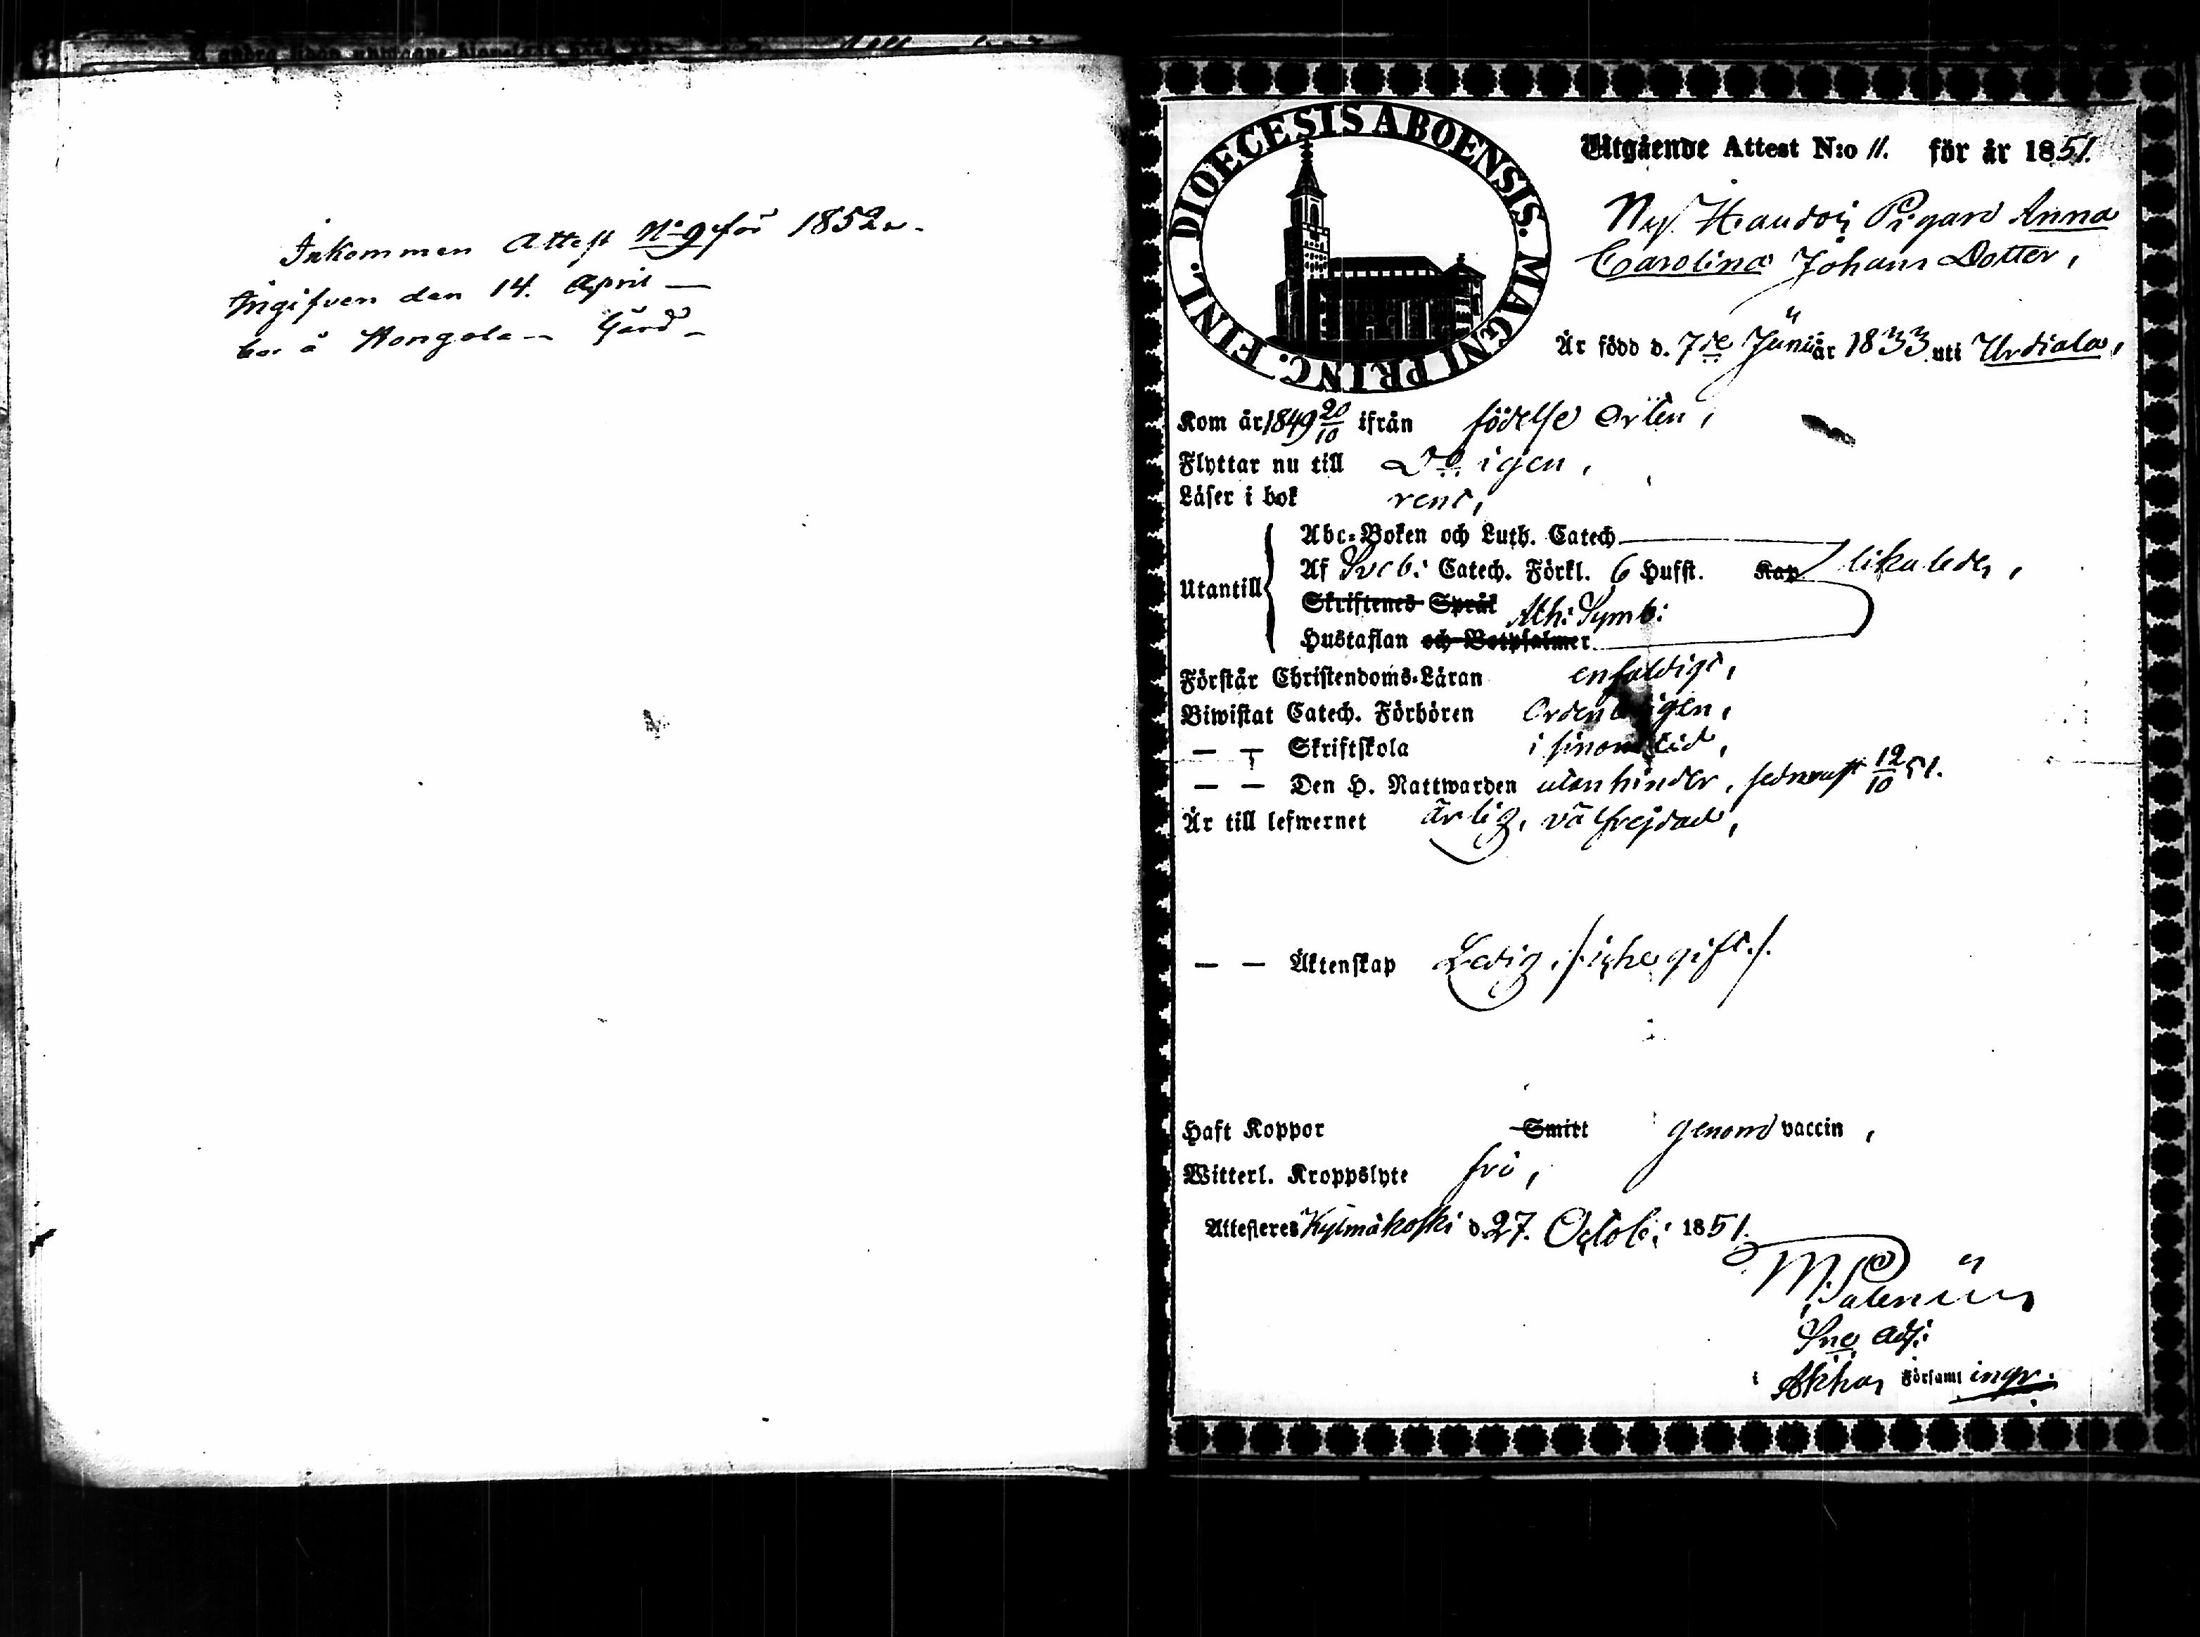 Inkommen Attest N:o 9 för 1852.
Ingifven den 14. April —
bor å Hongola — Gård —
DIOECESIS ABOENSIS. MAGNI PRINC. FINL.
Utgående Attest N:o 11. för år 1851.
Pigan Anna
Carolina Johans Dotter,
Är född d. 7de Junii år 1833 uti Urdiala,
Kom år 1849 20/10 ifrån födelse Orten,
Flyttar nu till Do igen,
Läser i bok rent,
Utantill
Abc-Boken och Luth. Catech
Af Sveb: Catech. Förkl. 6 Hufst. Kap likaledes,
Skriftenes Språk Ath: Symb:
Hustaflan och Botpsalmer
Förstår Christendoms-Läran enfaldigt,
Biwistat Catech. Förhören Ordenteligen,
— — Skriftskola i sinom tid,
— — Den H. Nattwarden utan hinder, sednast 12/10 51.
Är till lefwernet ärlig, välfrejdad,
— — Äktenskap Ledig, /: icke gift :/.
Haft Koppor Smitt genom vaccin,
Witterl. Kroppslyte fri,
Attesteres Kylmäkoski d. 27. Octob: 1851.
M. Salenius
Sne adj:
i Akkas Församl ingr.